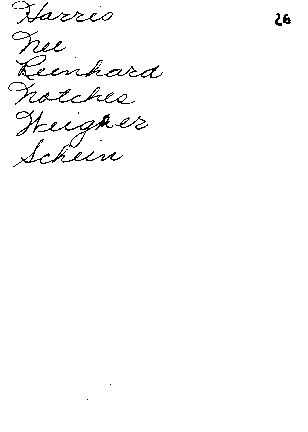 Harris 26
Nee
Reinhard
Notches
Weigner
Schein